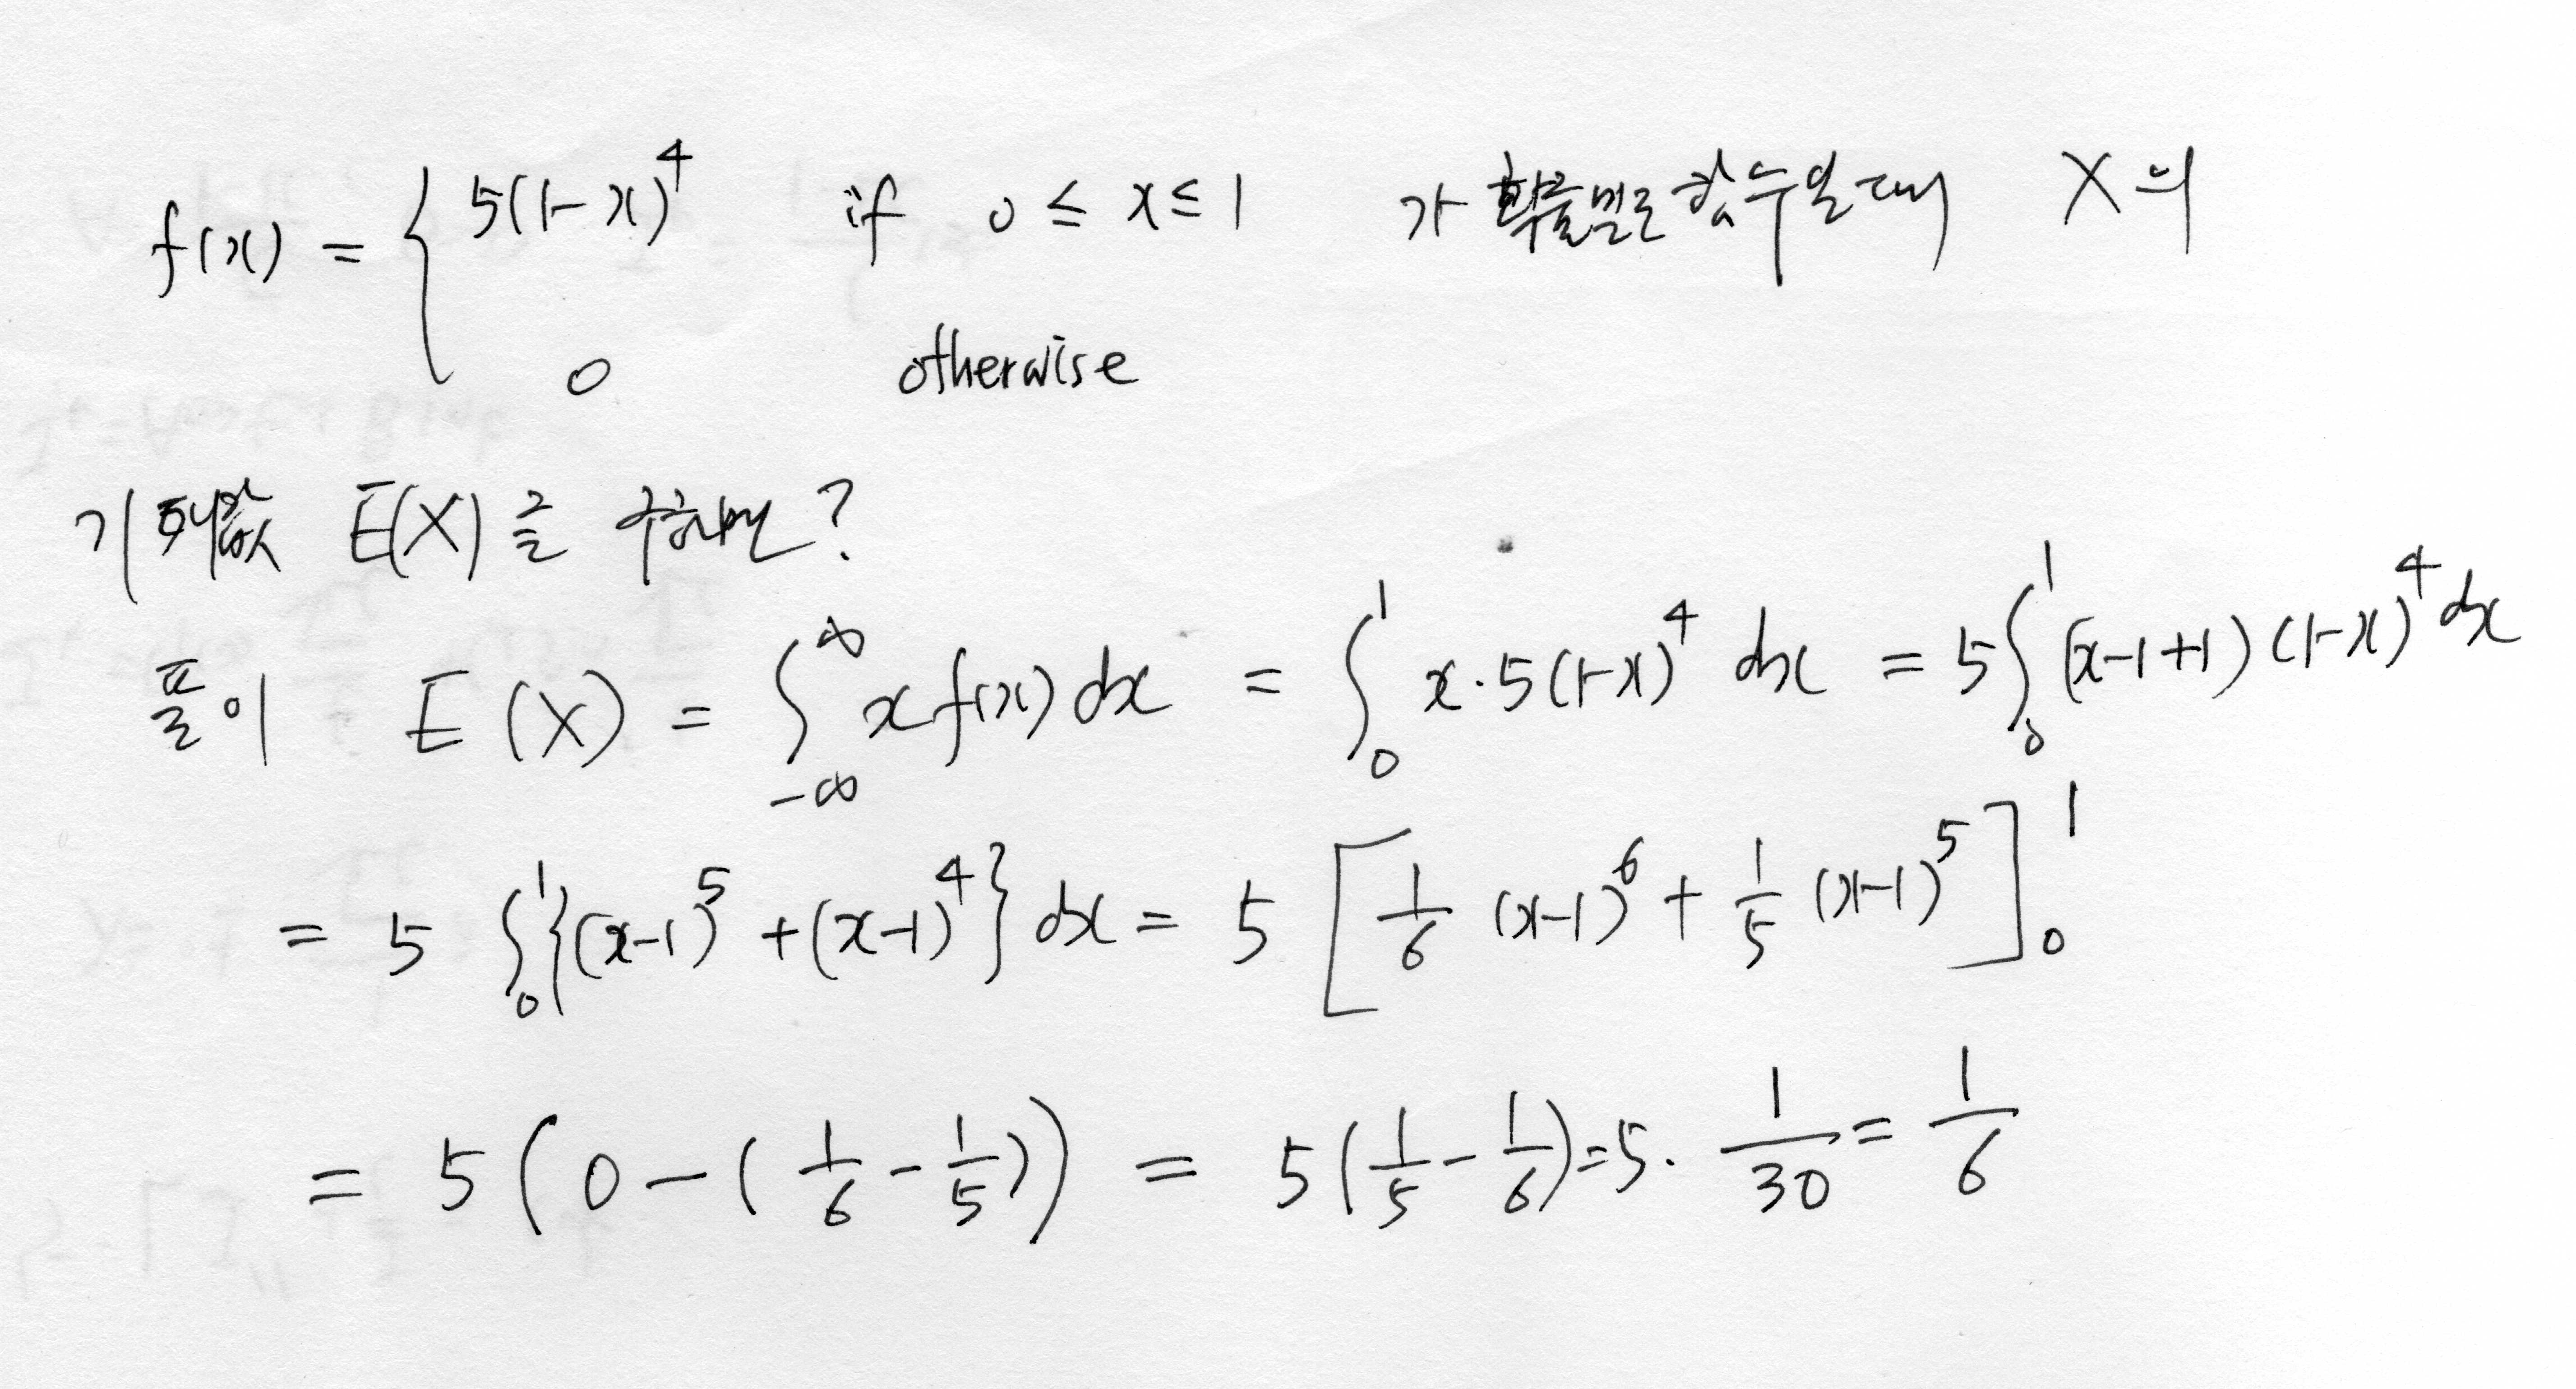 f(x) = { 5(1-x)^4 if 0 ≤ x ≤ 1 가 확률밀도함수일때 X의
0 otherwise
기댓값 E(X)를 구하면?
풀이 E(X) = ∫_{-∞}^{∞} x f(x) dx = ∫_0^1 x·5(1-x)^4 dx = 5∫_0^1 (x-1+1)(1-x)^4 dx
= 5 ∫_0^1 {(x-1)^5 + (x-1)^4} dx = 5 [ 1/6 (x-1)^6 + 1/5 (x-1)^5 ]_0^1
= 5 ( 0 - ( 1/6 - 1/5 ) ) = 5 ( 1/5 - 1/6 ) = 5 · 1/30 = 1/6